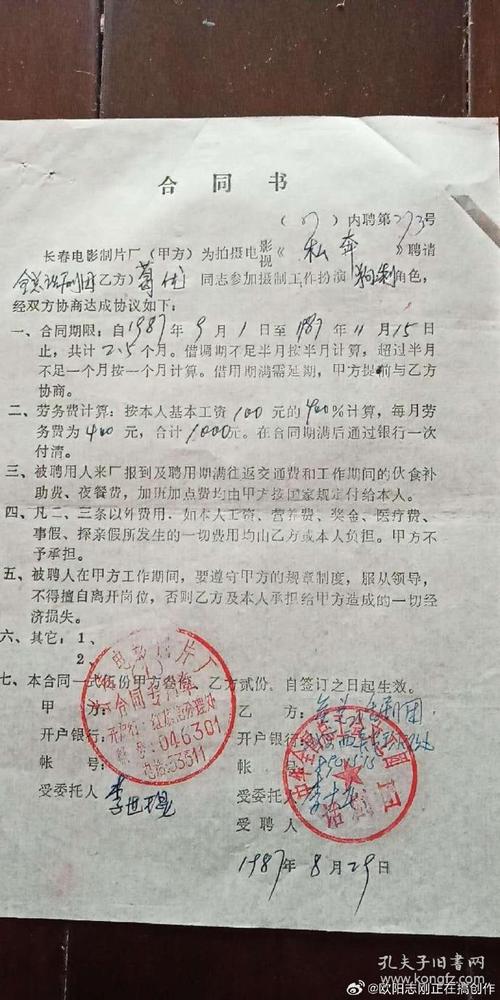 合同书
(87)内聘第273号
长春电影制片厂(甲方)为拍摄电影视《私奔》聘请
全总话剧团(乙方)葛优同志参加摄制工作扮演 角色,
经双方协商达成协议如下:
一、合同期限:自1987年9月1日至1987年11月15日
止,共计2.5个月。借调期不足半月按半月计算,超过半月
不足一个月按一个月计算。借用期满需延期,甲方提前与乙方
协商。
二、劳务费计算:按本人基本工资100元的400%计算,每月劳
务费为400元,合计1000元。在合同期满后通过银行一次
付清。
三、被聘用人来厂报到及聘用期满往返交通费和工作期间的伙食补
助费、夜餐费,加班加点费均由甲方按国家规定付给本人。
四、凡二、三条以外费用.如本人工资、营养费、奖金、医疗费、
事假、探亲假所发生的一切费用均由乙方或本人负担。甲方不
予承担。
五、被聘人在甲方工作期间,要遵守甲方的规章制度,服从领导,
不得擅自离开岗位,否则乙方及本人承担给甲方造成的一切经
济损失。
六、其它:1、
2、
七、本合同一式伍份甲方叁份,乙方贰份,自签订之日起生效。
甲方:
乙方:全总话剧团
开户银行:
开户银行:
帐号:
帐号:
受委托人
受委托人
受聘人
1987年8月29日
电影制片厂
合同专用章
开户行:红旗街办理处
帐号:046301
电话:53311
中华全国总工会
话剧团
孔夫子旧书网
kongfz.com
@欧阳志刚正在搞创作